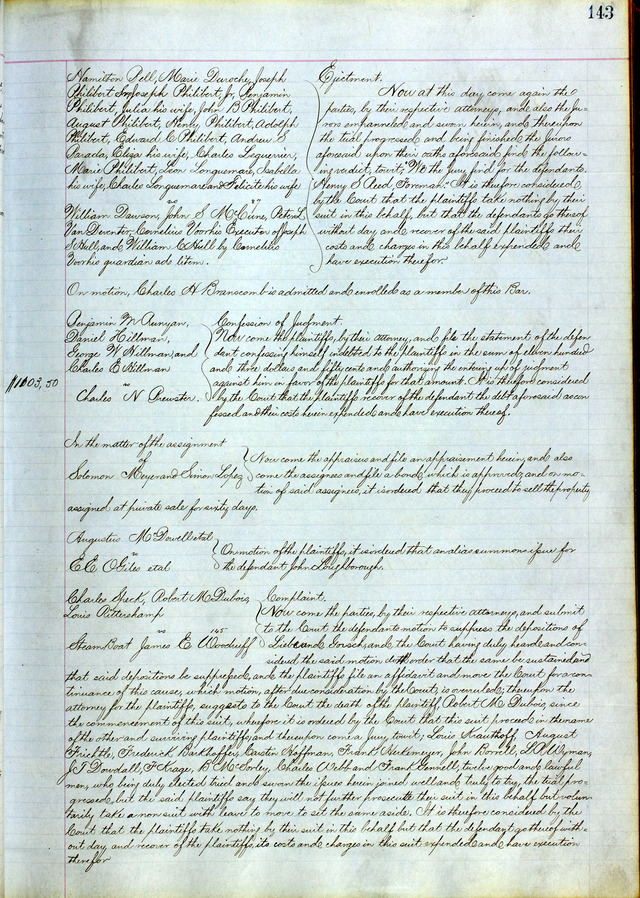 143
Hamilton Bell, Marie Duroche, Joseph
Philibert Joseph Philibert, Jr, Benjamin
Philibert, Julia his wife, John B Philibert,
August Philibert, Henry Philibert, Adolph
Philibert, Edward C Philibert, Andrew S
Sarada, Eliza his wife, Charles Leguerrier,
Marie Philibert, Leon Longuemare, Isabella
his wife, Charles Longuemare and Felicite his wife
vs
William Dawson, John S McCune, Peter L
Van Deventer, Cornelius Voorhis Executor of Joseph
S Hull, and William C Hull by Cornelius
Voorhis guardian ads litem.
Ejectment.
Now at this day come again the
parties, by their respective attorneys, and also the ju-
rors empaneled and sworn herein, and thereupon
the trial progressed and being finished the jurors
aforesaid upon their oaths aforesaid find the follow-
ing verdict, towit; "We the jury find for the defendants.
Henry S Reed Foreman." It is therefore considered
by the Court that the plaintiffs take nothing by their
suit in this behalf, but that the defendants go thereof
without day and recover of the said plaintiffs their
costs and charges in this behalf expended and
have execution therefor.
On motion, Charles H Branscomb is admitted and enrolled as a member of this Bar.
Benjamin M Runyan,
Daniel Hillman,
George W Hillman, and
Charles E Hillman
vs
Charles N Brewster.
$1103,50
Confession of Judgment.
Now come the plaintiffs, by their attorney, and file the statement of the defen-
dant confessing himself indebted to the plaintiffs in the sum of eleven hundred
and three dollars and fifty cents and authorizing the entering up of judgment
against him in favor of the plaintiffs for that amount. It is therefore considered
by the Court that the plaintiffs recover of the defendant the debt aforesaid as con-
fessed and their costs herein expended and have execution thereof.
In the matter of the assignment
of
Solomon Meyer and Simon Lopez
Now come the appraisers and file an appraisement herein, and also
come the assignees and file a bond, which is approved; and on mo-
tion of said assignees, it is ordered that they proceed to sell the property
assigned at private sale for sixty days.
Augustus McDowell et al
vs
E.E. O Giles et al
On motion of the plaintiffs, it is ordered that an alias summons issue for
the defendant John Loughborough.
Charles Heck, Robert M Dubois,
Louis Rittershamp
vs 165
Steam Boat James E Woodruff
Complaint.
Now come the parties, by their respective attorneys, and submit
to the Court the defendants motion to suppress the depositions of
and and the Court having duly heard and con-
sidered the said motion doth order that the same be sustained and
that said depositions be suppressed, and the plaintiffs file an affidavit and move the Court for a con-
tinuance of this cause, which motion, after due consideration by the Court, is overruled; thereupon the
attorney for the plaintiffs, suggests to the Court the death of the plaintiff Robert M. Dubois, since
the commencement of this suit, wherefore it is ordered by the Court that this suit proceed in the name
of the other and surviving plaintiffs; and thereupon come a jury, towit; Louis Krauthoff, August
Friehtle, Frederick Backhoffer, Carstin Hoffman, Frank Beckemeyer, John Borrell, L.A. Wyman,
J.J. Dowdall, F Krage, B McSorley, Charles Webb and Frank Gennell, twelve good and lawful
men, who being duly elected tried and sworn the issues herein joined well and truly to try, the trial pro-
gressed, but the said plaintiffs say they will not further prosecute their suit in this behalf, but volun-
tarily take a nonsuit with leave to move to set the same aside. It is therefore considered by the
Court that the plaintiffs take nothing by their suit in this behalf but that the defendant go thereof with-
out day, and recover of the plaintiffs, its costs and charges in this suit expended and have execution
therefor